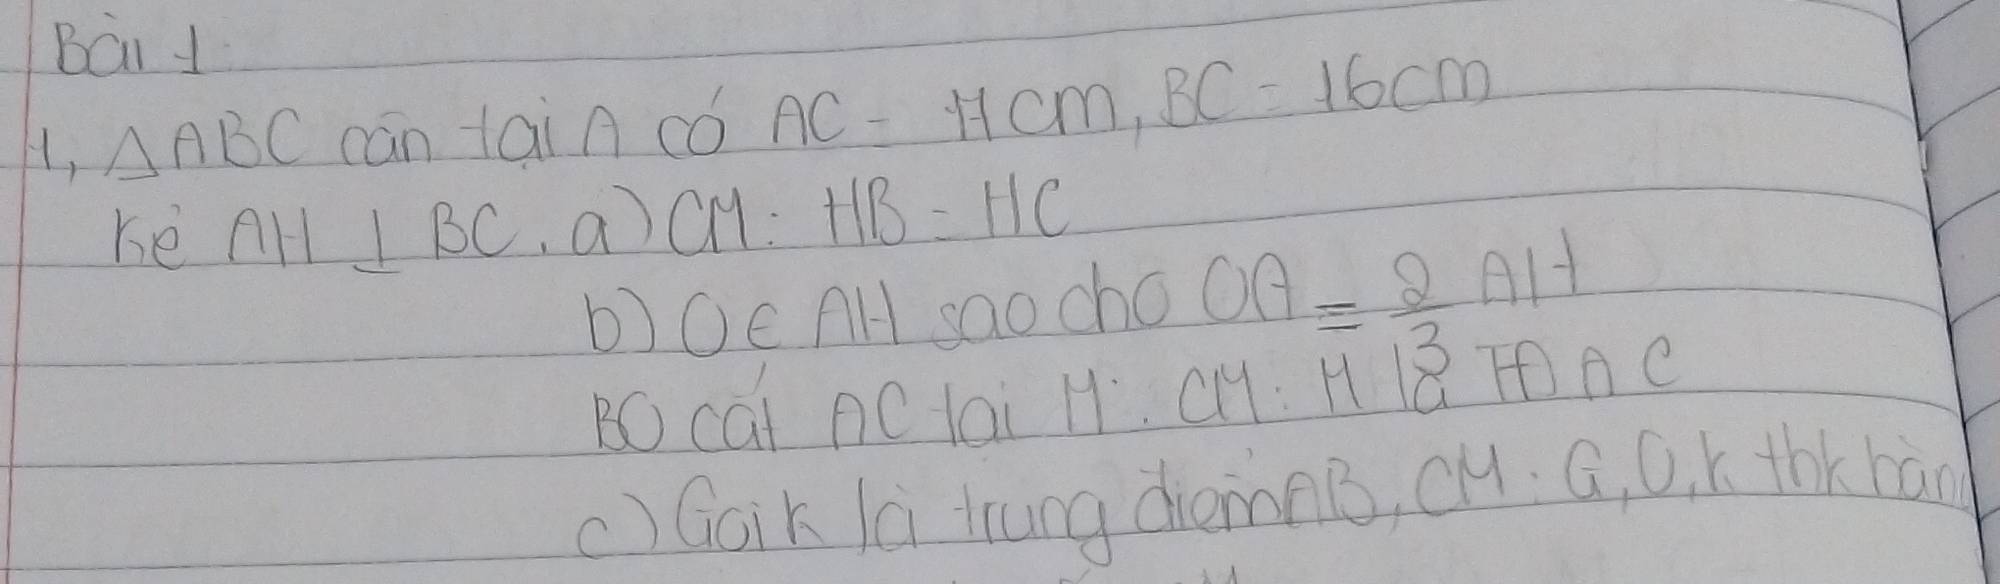 Bài 1
1, △ABC cân tại A có AC = 11cm, BC = 16cm
Kẻ AH ⊥ BC. a) CM: HB = HC
b) O ∈ AH sao cho OA = 2/3 AH
BO cắt AC tại M. CM: M là TĐ AC
c) Gọi K là trung điểm AB, CM: G, O, K th hàng